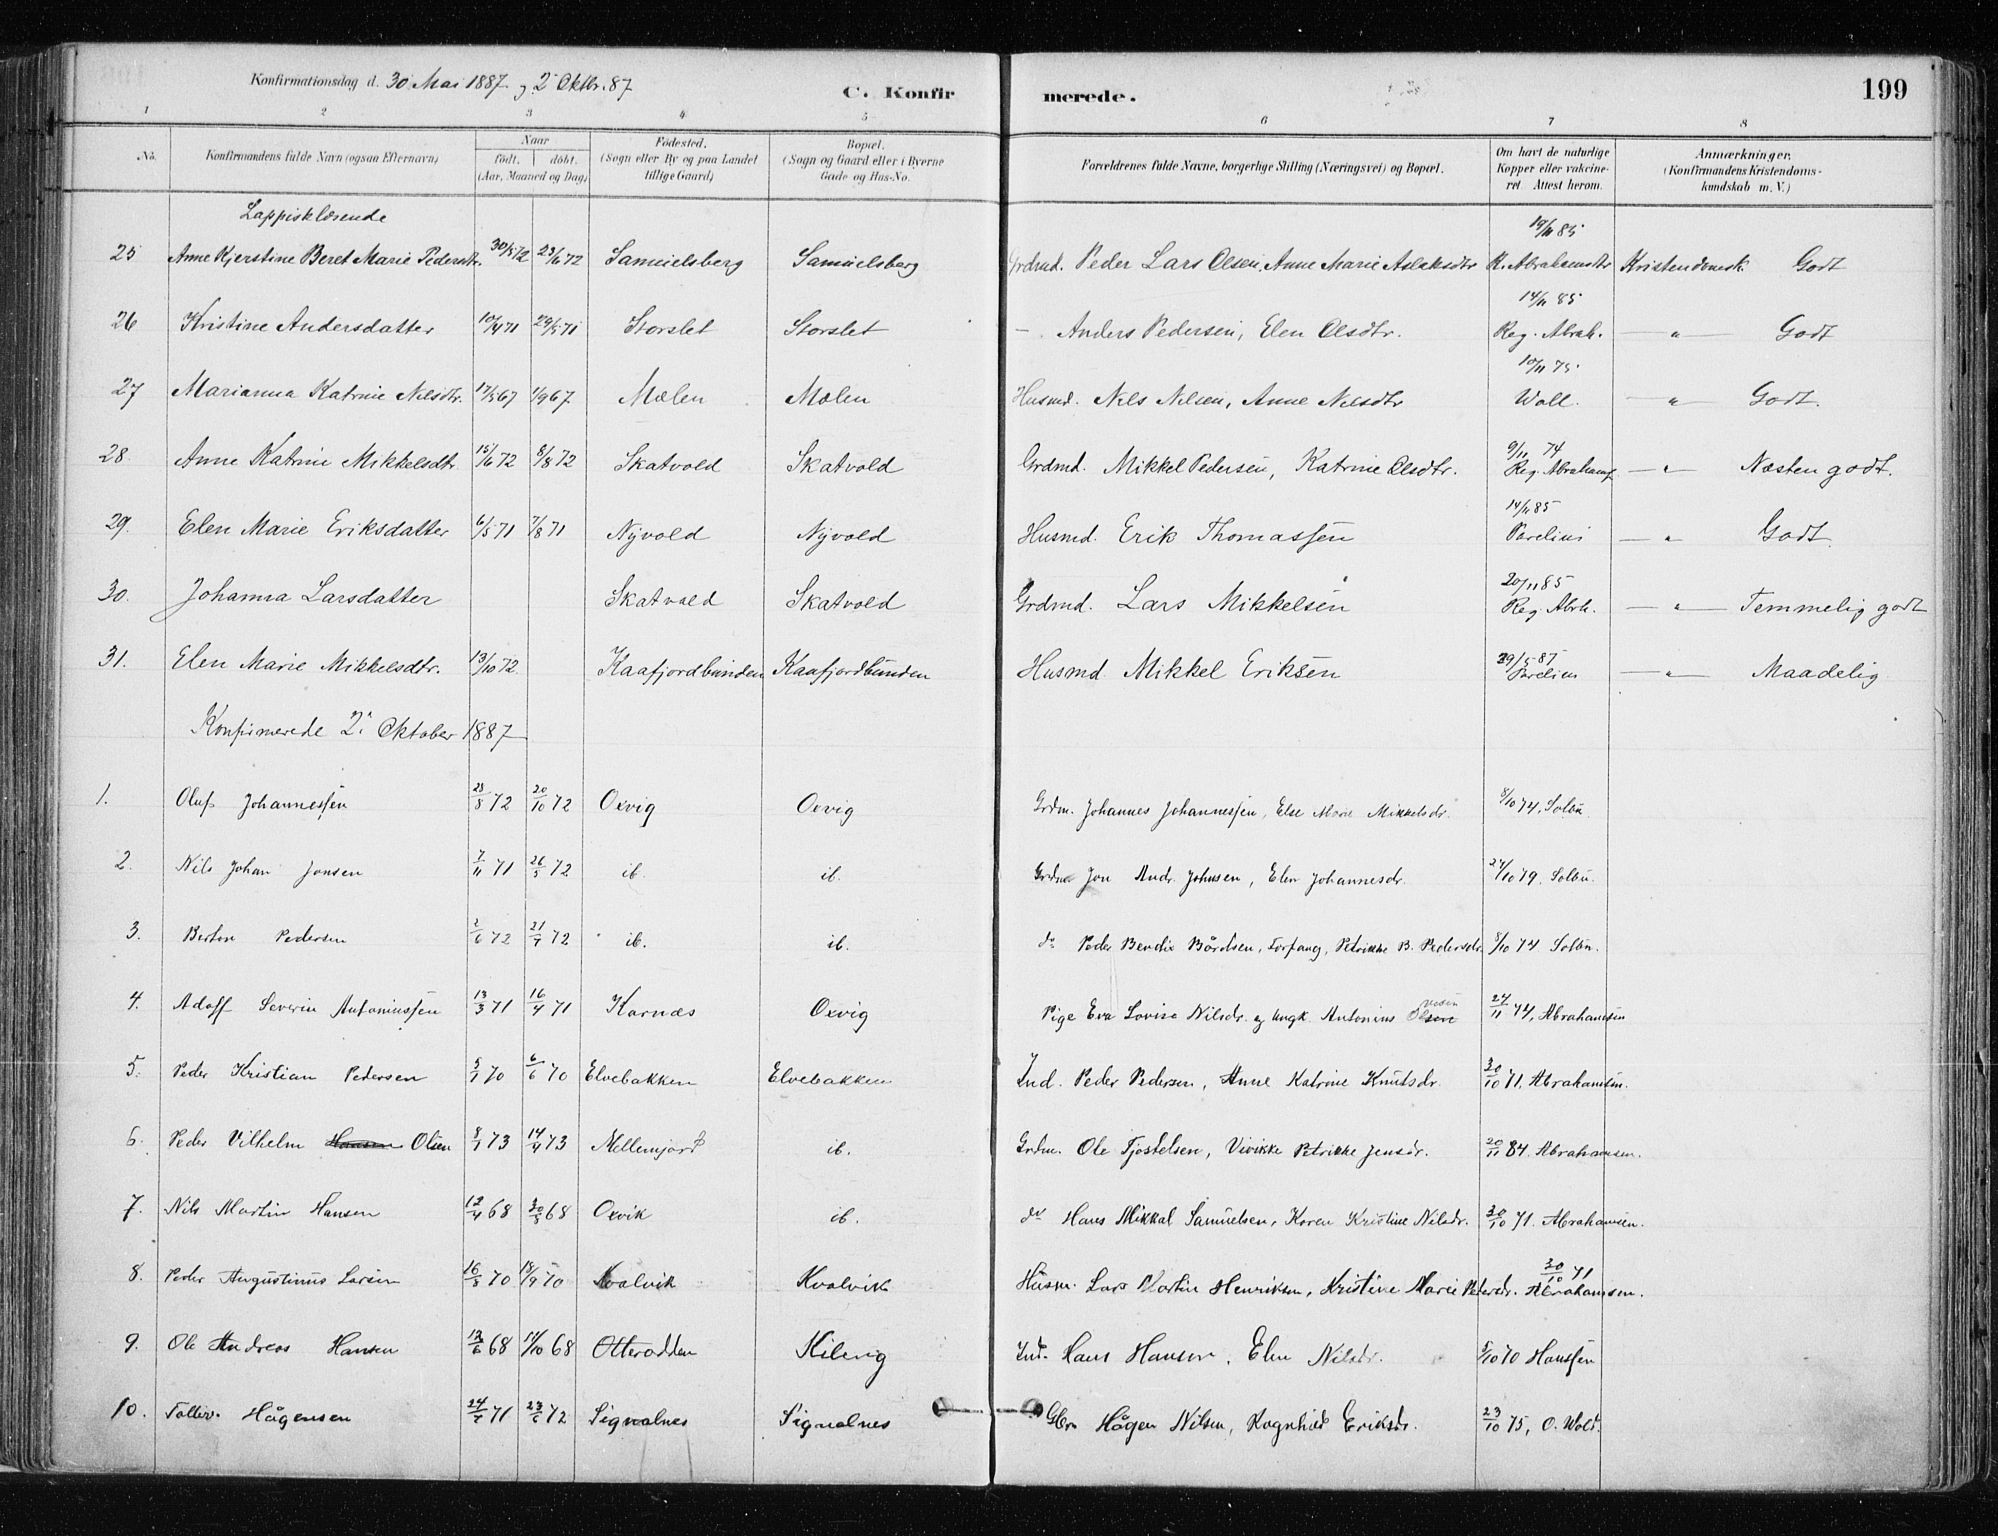 Konfirmationsdag d. 30 Mai 1887 og 2 Oktbr. 87 C. Konfirmerede. 199
1 2 3 4 5 6 7 8
No. Konfirmandens fulde Navn (ogsaa Efternavn) Naar født. døbt. (Aar, Maaned og Dag) Fødested. (Sogn eller By og paa Landet tillige Gaard) Bopæl. (Sogn og Gaard eller i Byerne Gade og Hus-No. Forældrenes fulde Navne, borgerlige Stilling (Næringsvei) og Bopæl. Om havt de naturlige Kopper eller vakcineret. Attest herom. Anmærkninger. (Konfirmandens Kristendomskundskab m. V.)
Lappisklæsende
25 Anne Kjerstine Beret Marie Pedersdtr. 30/5 72 23/6 72 Samuelsberg Samuelsberg Grdmd. Peder Lars Olsen, Anne Marie Aslaksdtr 19/11 85 R. Abrahamsdtr Kristendomsk. Godt
26 Kristine Andersdatter 10/4 71 29/5 71 Storslet Storslet — Anders Pedersen, Elen Olsdtr. 14/11 85 Reg. Abrah. — " — Godt
27 Marianna Katrine Nilsdtr. 17/5 67 1/9 67 Mælen Mælen Husmd. Nils Nilsen, Anne Nilsdtr 10/11 75 Woll. — " — Godt.
28. Anne Katrine Mikkelsdtr. 15/6 72 8/8 72 Skatvold Skatvold Grdmd. Mikkel Pedersen, Katrine Olsdtr. 9/11 74 Reg. Abrahams — " — Næsten godt.
29. Elen Marie Eriksdatter 6/5 71 7/8 71 Nyvold Nyvold Husmd. Erik Thomassen 14/11 85 Parelius — " — Godt.
30. Johanna Larsdatter Skatvold Skatvold Grdmd. Lars Mikkelsen 20/11 85 Reg. Abrh. — " — Temmelig godt
31. Elen Marie Mikkelsdtr. 13/10 72 Kaafjordbunden Kaafjordbunden Husmd Mikkel Eriksen 29/5 87 Parelius — " — Maadelig
Konfirmerede 2. Oktober 1887
1. Oluf Johannessen 28/8 72 20/10 72 Oxvig Oxvig Grdm. Johannes Johannessen, Else Marie Mikkelsdr. 8/10 74, Solbu
2. Nils Johan Jonsen 7/11 71 26/5 72 ib. ib. Grdm Jon Andr. Johnsen, Elen Johannesdr. 27/10 79, Solbu.
3. Berton Pedersen 2/6 72 21/7 72 ib. ib. do Peder Bendix Bårdsen, Torfang, Petrikke B. Pedersdr. 8/10 74 Solbu.
4. Adolf Severin Antoniussen 13/3 71 16/4 71 Karnæs Oxvig Pige Eva Lovise Nilsdr. og Ungk. Antonius Olsen 24/11 74, Abrahamsen
5. Peder Kristian Pedersen 5/1 70 6/6 70 Elvebakken Elvebakken Ind. Peder Pedersen, Anne Katrine Knutsdr. 30/10 71, Abrahamsen.
6. Peder Vilhelm Hansen Olsen 8/1 73 14/4 73 Mellemjord ib. Grdm. Ole Tjostelsen, Vivikke Petrikke Jensdr. 20/11 84. Abrahamsen.
7. Nils Martin Hansen 12/4 68 30/5 68 Oxvik ib. do Hans Mikkal Samuelsen, Karen Kristine Nilsdr. 30/10 71. Abrahamsen.
8. Peder Augustinus Larsen 16/8 70 18/9 70 Kvalvik Kvalvik Husm. Lars Martin Henriksen, Kristine Marie Pedersdr. 30/10 71 Abrahamsen.
9. Ole Andreas Hansen 12/6 68 11/10 68 Otterodden Kilevig Ind. Hans Hansen, Elen Nilsdr. 5/10 70 Hanssen
10. Tollev. Hågensen 24/7 71 23/6 72 Signalnes Signalnes Gbr Hågen Nilsen, Ragnhild Eriksdr. 23/10 75, O. Wold.